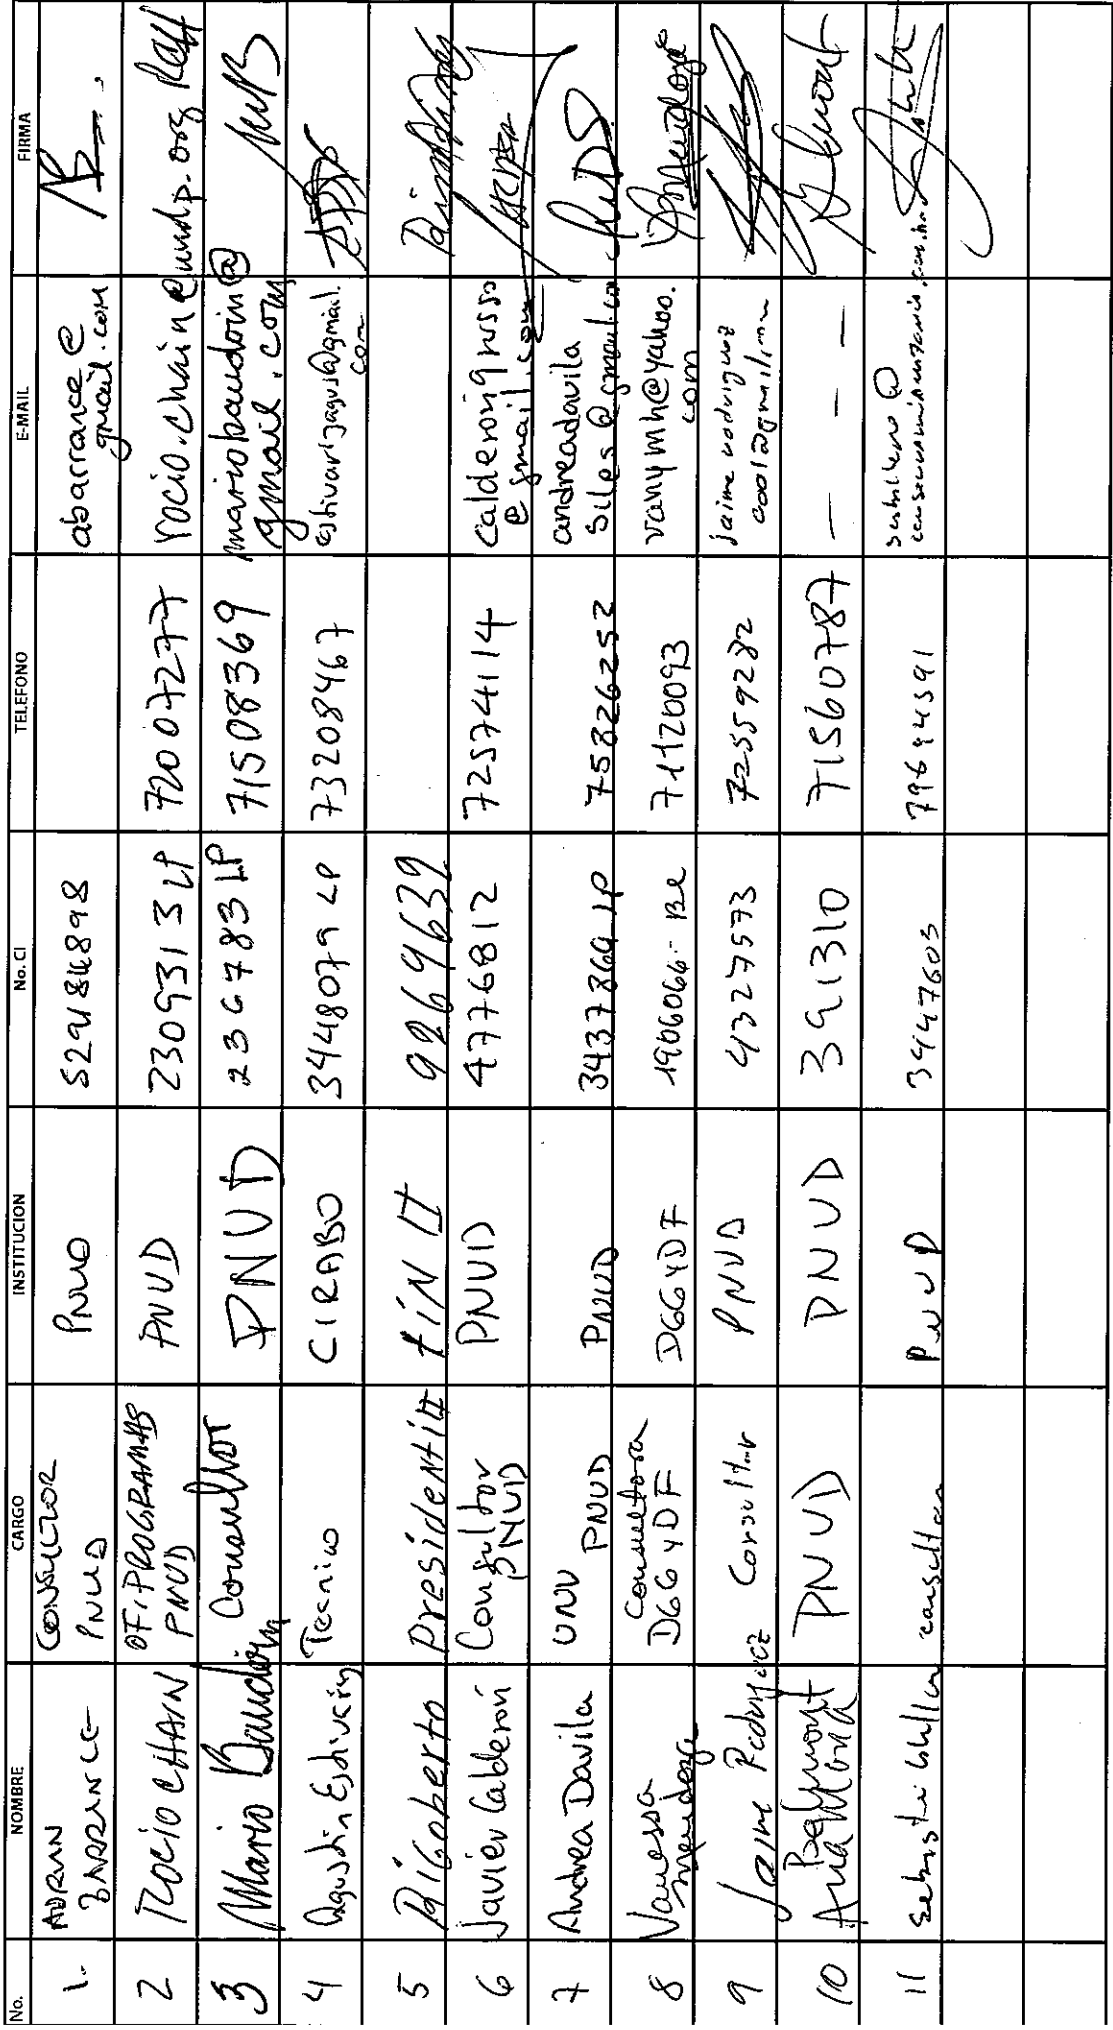 No. NOMBRE CARGO INSTITUCION No. CI TELEFONO E-MAIL FIRMA
1. ADRIAN BARRANCE CONSULTOR PNUD PNUD abarrance@gmail.com
2 ROCIO CHAIN OF. PROGRAMAS PNUD PNUD 2309313 LP 72007277 rocio.chain@undp.org
3 Mario Baudoin Consultor PNUD 236783 LP 71508369 mariobaudoin@gmail.com
4 Agustin Estivariz Tecnico CIRABO 3448079 LP 73208467 estivarizagus@gmail.com
5 RiGoberto Presidentitt 9269639
6 Javier Calderón Consultor PNUD PNUD 4776812 72574114 calderon9russo@gmail.com
7 Andrea Davila UNV PNUD PNUD 3437869 LP 75826252 andreadavilasiles@gmail.com
8 Vanessa Mendoza Consultora DGGyDF DGGyDF 1906066-Be 71120093 vanymh@yahoo.com
9 Jaime Rodriguez Consultor PNUD 4327573 72559282
10 Ana PNUD PNUD 391310 71560787 - - -
11 consultor PNUD 3447603